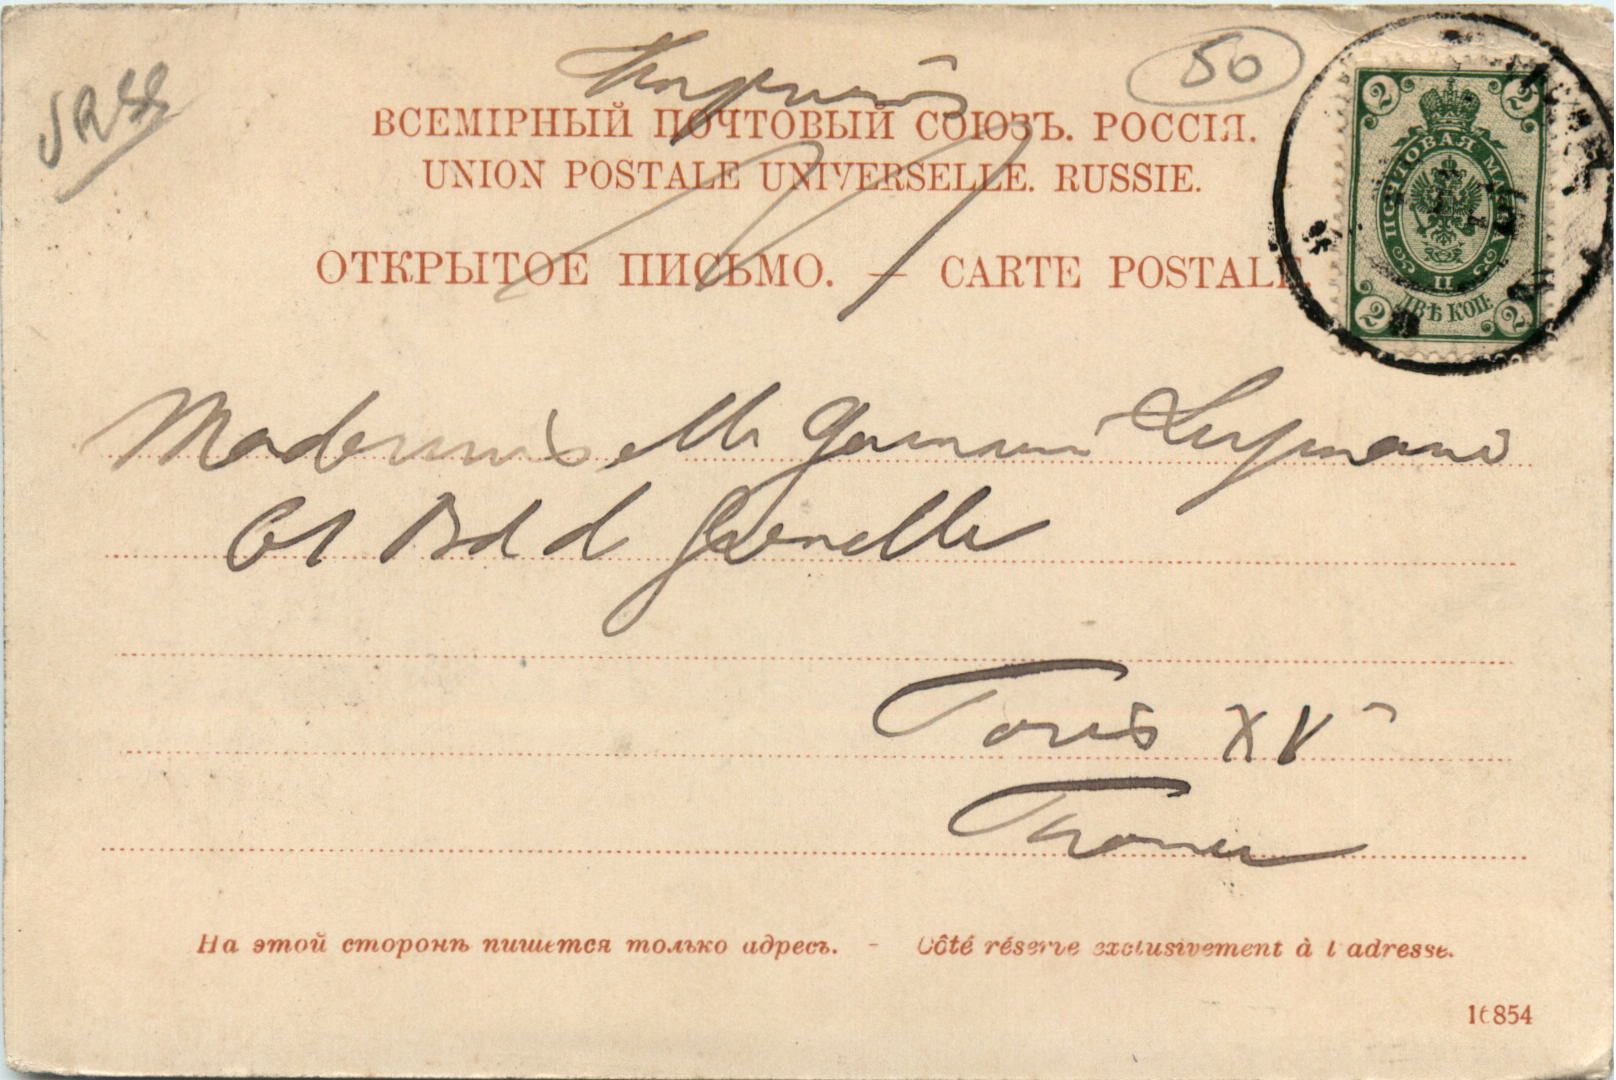 50
ВСЕМІРНЫЙ ПОЧТОВЫЙ СОЮЗЪ. РОССІЯ.
UNION POSTALE UNIVERSELLE. RUSSIE.
ОТКРЫТОЕ ПИСЬМО. — CARTE POSTALE.
2 2
ПОЧТОВАЯ МАРКА
2 ДВѢ КОП. 2
Mademoiselle Germaine
61 Bd de Grenelle
Paris XVe
France
На этой сторонѣ пишется только адресъ. - Côté réservé exclusivement à l'adresse.
16854